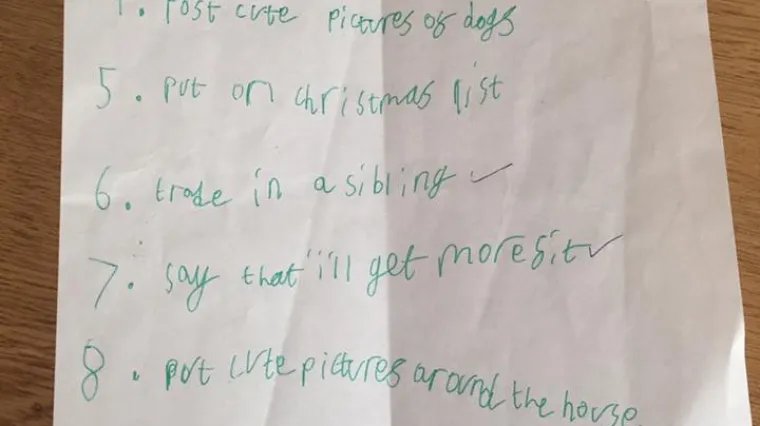 Post cute pictures of dogs
5. put on christmas list
6. trade in a sibling ✓
7. say that i'll get more fit ✓
8. put cute pictures around the house